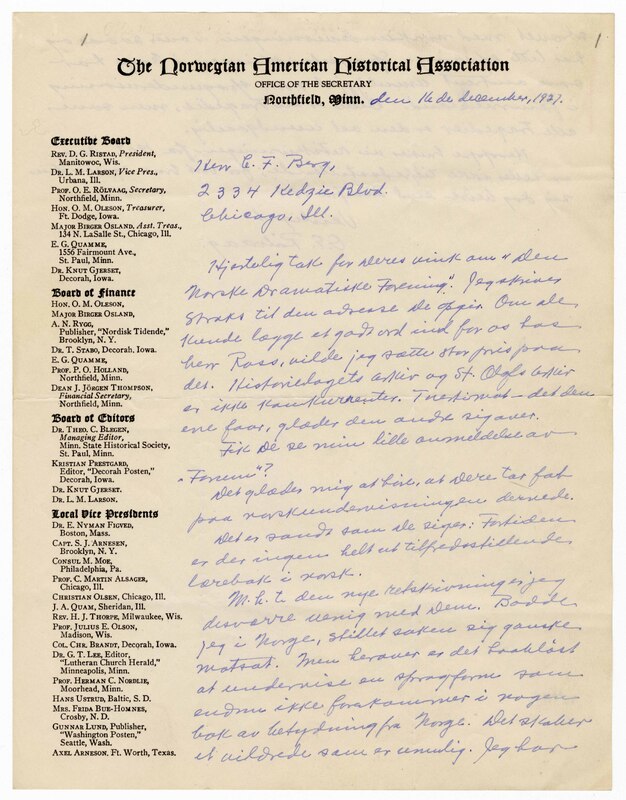 The Norwegian American Historical Association
OFFICE OF THE SECRETARY
Northfield, Minn. den 16de december, 1927.
Executive Board
REV. D. G. RISTAD, President,
Manitowoc, Wis.
DR. L. M. LARSON, Vice Pres.,
Urbana, Ill.
PROF. O. E. RÖLVAAG, Secretary,
Northfield, Minn.
HON. O. M. OLESON, Treasurer,
Ft. Dodge, Iowa.
MAJOR BIRGER OSLAND, Asst. Treas.,
134 N. LaSalle St., Chicago, Ill.
E. G. QUAMME,
1556 Fairmount Ave.,
St. Paul, Minn.
DR. KNUT GJERSET,
Decorah, Iowa.
Board of Finance
HON. O. M. OLESON,
MAJOR BIRGER OSLAND,
A. N. RYGG,
Publisher, "Nordisk Tidende,"
Brooklyn, N. Y.
DR. T. STABO, Decorah, Iowa.
E. G. QUAMME,
PROF. P. O. HOLLAND,
Northfield, Minn.
DEAN J. JÖRGEN THOMPSON,
Financial Secretary,
Northfield, Minn.
Board of Editors
DR. THEO. C. BLEGEN,
Managing Editor,
Minn. State Historical Society,
St. Paul, Minn.
KRISTIAN PRESTGARD,
Editor, "Decorah Posten,"
Decorah, Iowa.
DR. KNUT GJERSET.
DR. L. M. LARSON.
Local Vice Presidents
DR. E. NYMAN FIGVED,
Boston, Mass.
CAPT. S. J. ARNESEN,
Brooklyn, N. Y.
CONSUL M. MOE,
Philadelphia, Pa.
PROF. C. MARTIN ALSAGER,
Chicago, Ill.
CHRISTIAN OLSEN, Chicago, Ill.
J. A. QUAM, Sheridan, Ill.
REV. H. J. THORPE, Milwaukee, Wis.
PROF. JULIUS E. OLSON,
Madison, Wis.
COL. CHR. BRANDT, Decorah, Iowa.
DR. G. T. LEE, Editor,
"Lutheran Church Herald,"
Minneapolis, Minn.
PROF. HERMAN C. NORDLIE,
Moorhead, Minn.
HANS USTRUD, Baltic, S. D.
MRS. FRIDA BUE-HOMNES,
Crosby, N. D.
GUNNAR LUND, Publisher,
"Washington Posten,"
Seattle, Wash.
AXEL ARNESON, Ft. Worth, Texas.
Herr C. F. Berg,
2334 Kedzie Blvd.
Chicago, Ill.
Hjertelig tak for Deres vink om "Den
Norske Dramatiske Forening". Jeg skrives
straks til den adresse De opgir. Om De
kunde lægge et godt ord ind for os hos
herr Ross, vilde jeg sætte stor pris paa
det. Historielagets arkiv og St. Olafs arkiv
er ikke konkurrenter. Tvertimot – det den
ene faar, glæder den andre sig over.
Fik De se min lille anmeldelse av
"Forum"?
Det glæder mig at höre, at Dere tar fat
paa norskundervisningen dernede.
Det er sandt som De siger: For tiden
er der ingen helt ut tilfredsstillende
lærebok i norsk.
M.h.t. den nye retskrivning er jeg
desværre uenig med Dem. Bodde
jeg i Norge, stillet saken sig ganske
motsat. Men herover er det haablöst
at undervise en sprogform som
endnu ikke forekommer i nogen
bok av betydning fra Norge. Det skaber
et vildrede som er umulig. Jeg har